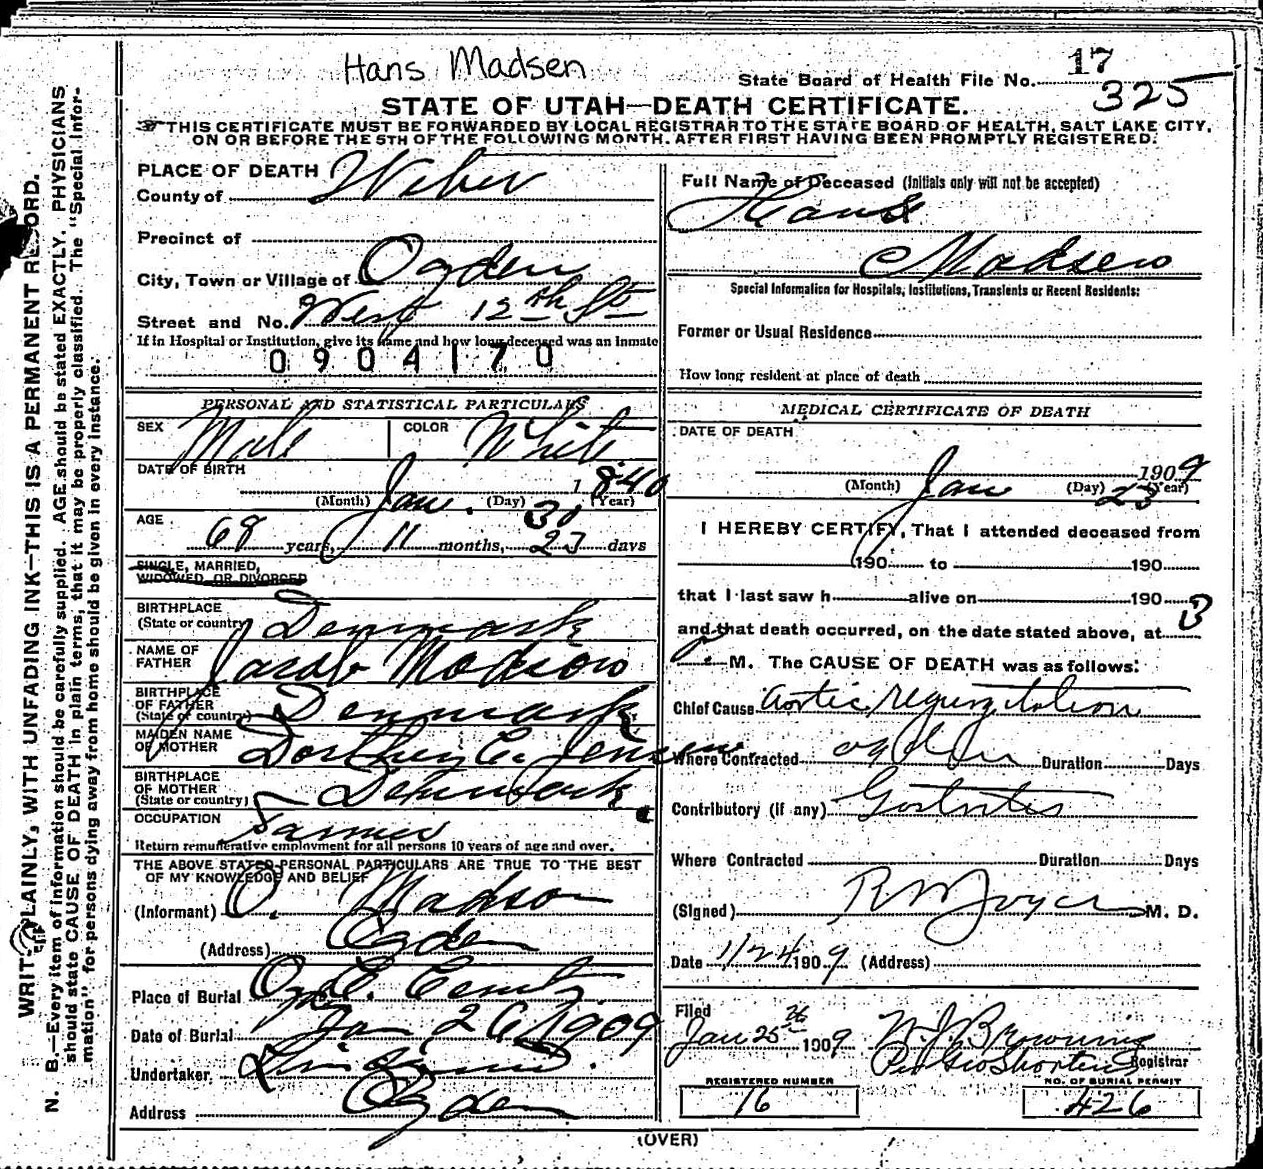 Hans Madsen
State Board of Health File No. 17
325
STATE OF UTAH—DEATH CERTIFICATE.
THIS CERTIFICATE MUST BE FORWARDED BY LOCAL REGISTRAR TO THE STATE BOARD OF HEALTH, SALT LAKE CITY,
ON OR BEFORE THE 5TH OF THE FOLLOWING MONTH. AFTER FIRST HAVING BEEN PROMPTLY REGISTERED.
PLACE OF DEATH
County of Weber
Precinct of
City, Town or Village of Ogden
Street and No. West 12th St
If in Hospital or Institution, give its name and how long deceased was an Inmate
0904170
PERSONAL AND STATISTICAL PARTICULARS
SEX Male COLOR White
DATE OF BIRTH
Jan. 30 1840
(Month) (Day) (Year)
AGE
68 years, 11 months, 23 days
SINGLE, MARRIED,
WIDOWED, OR DIVORCED
BIRTHPLACE
(State or country) Denmark
NAME OF
FATHER Jacob Madsen
BIRTHPLACE
OF FATHER
(State or country) Denmark
MAIDEN NAME
OF MOTHER Dorthey C. Jensen
BIRTHPLACE
OF MOTHER
(State or country) Denmark
OCCUPATION Farmer
Return remunerative employment for all persons 10 years of age and over.
THE ABOVE STATED PERSONAL PARTICULARS ARE TRUE TO THE BEST
OF MY KNOWLEDGE AND BELIEF
(Informant) O. Madson
(Address) Ogden
Place of Burial
Date of Burial Jan 26 1909
Undertaker
Address Ogden
Full Name of Deceased (Initials only will not be accepted)
Hans
Madsen
Special Information for Hospitals, Institutions, Transients or Recent Residents:
Former or Usual Residence
How long resident at place of death
MEDICAL CERTIFICATE OF DEATH
DATE OF DEATH
Jan 23 1909
(Month) (Day) (Year)
I HEREBY CERTIFY, That I attended deceased from
190 to 190
that I last saw h alive on 190
and that death occurred, on the date stated above, at 3
M. The CAUSE OF DEATH was as follows:
Chief Cause Aortic regurgitation
Where Contracted Ogden Duration Days
Contributory (if any) Gastritis
Where Contracted Duration Days
(Signed) M. D.
Date 1/24 1909 (Address)
Filed
Jan 25 26 1909 W J Browning
Per Geo Shorten Registrar
REGISTERED NUMBER
16
NO. OF BURIAL PERMIT
426
(OVER)
N. B.—Every item of information should be carefully supplied. AGE should be stated EXACTLY. PHYSICIANS
should state CAUSE OF DEATH in plain terms, that it may be properly classified. The "Special Infor-
mation" for persons dying away from home should be given in every instance.
WRITE PLAINLY, WITH UNFADING INK—THIS IS A PERMANENT RECORD.